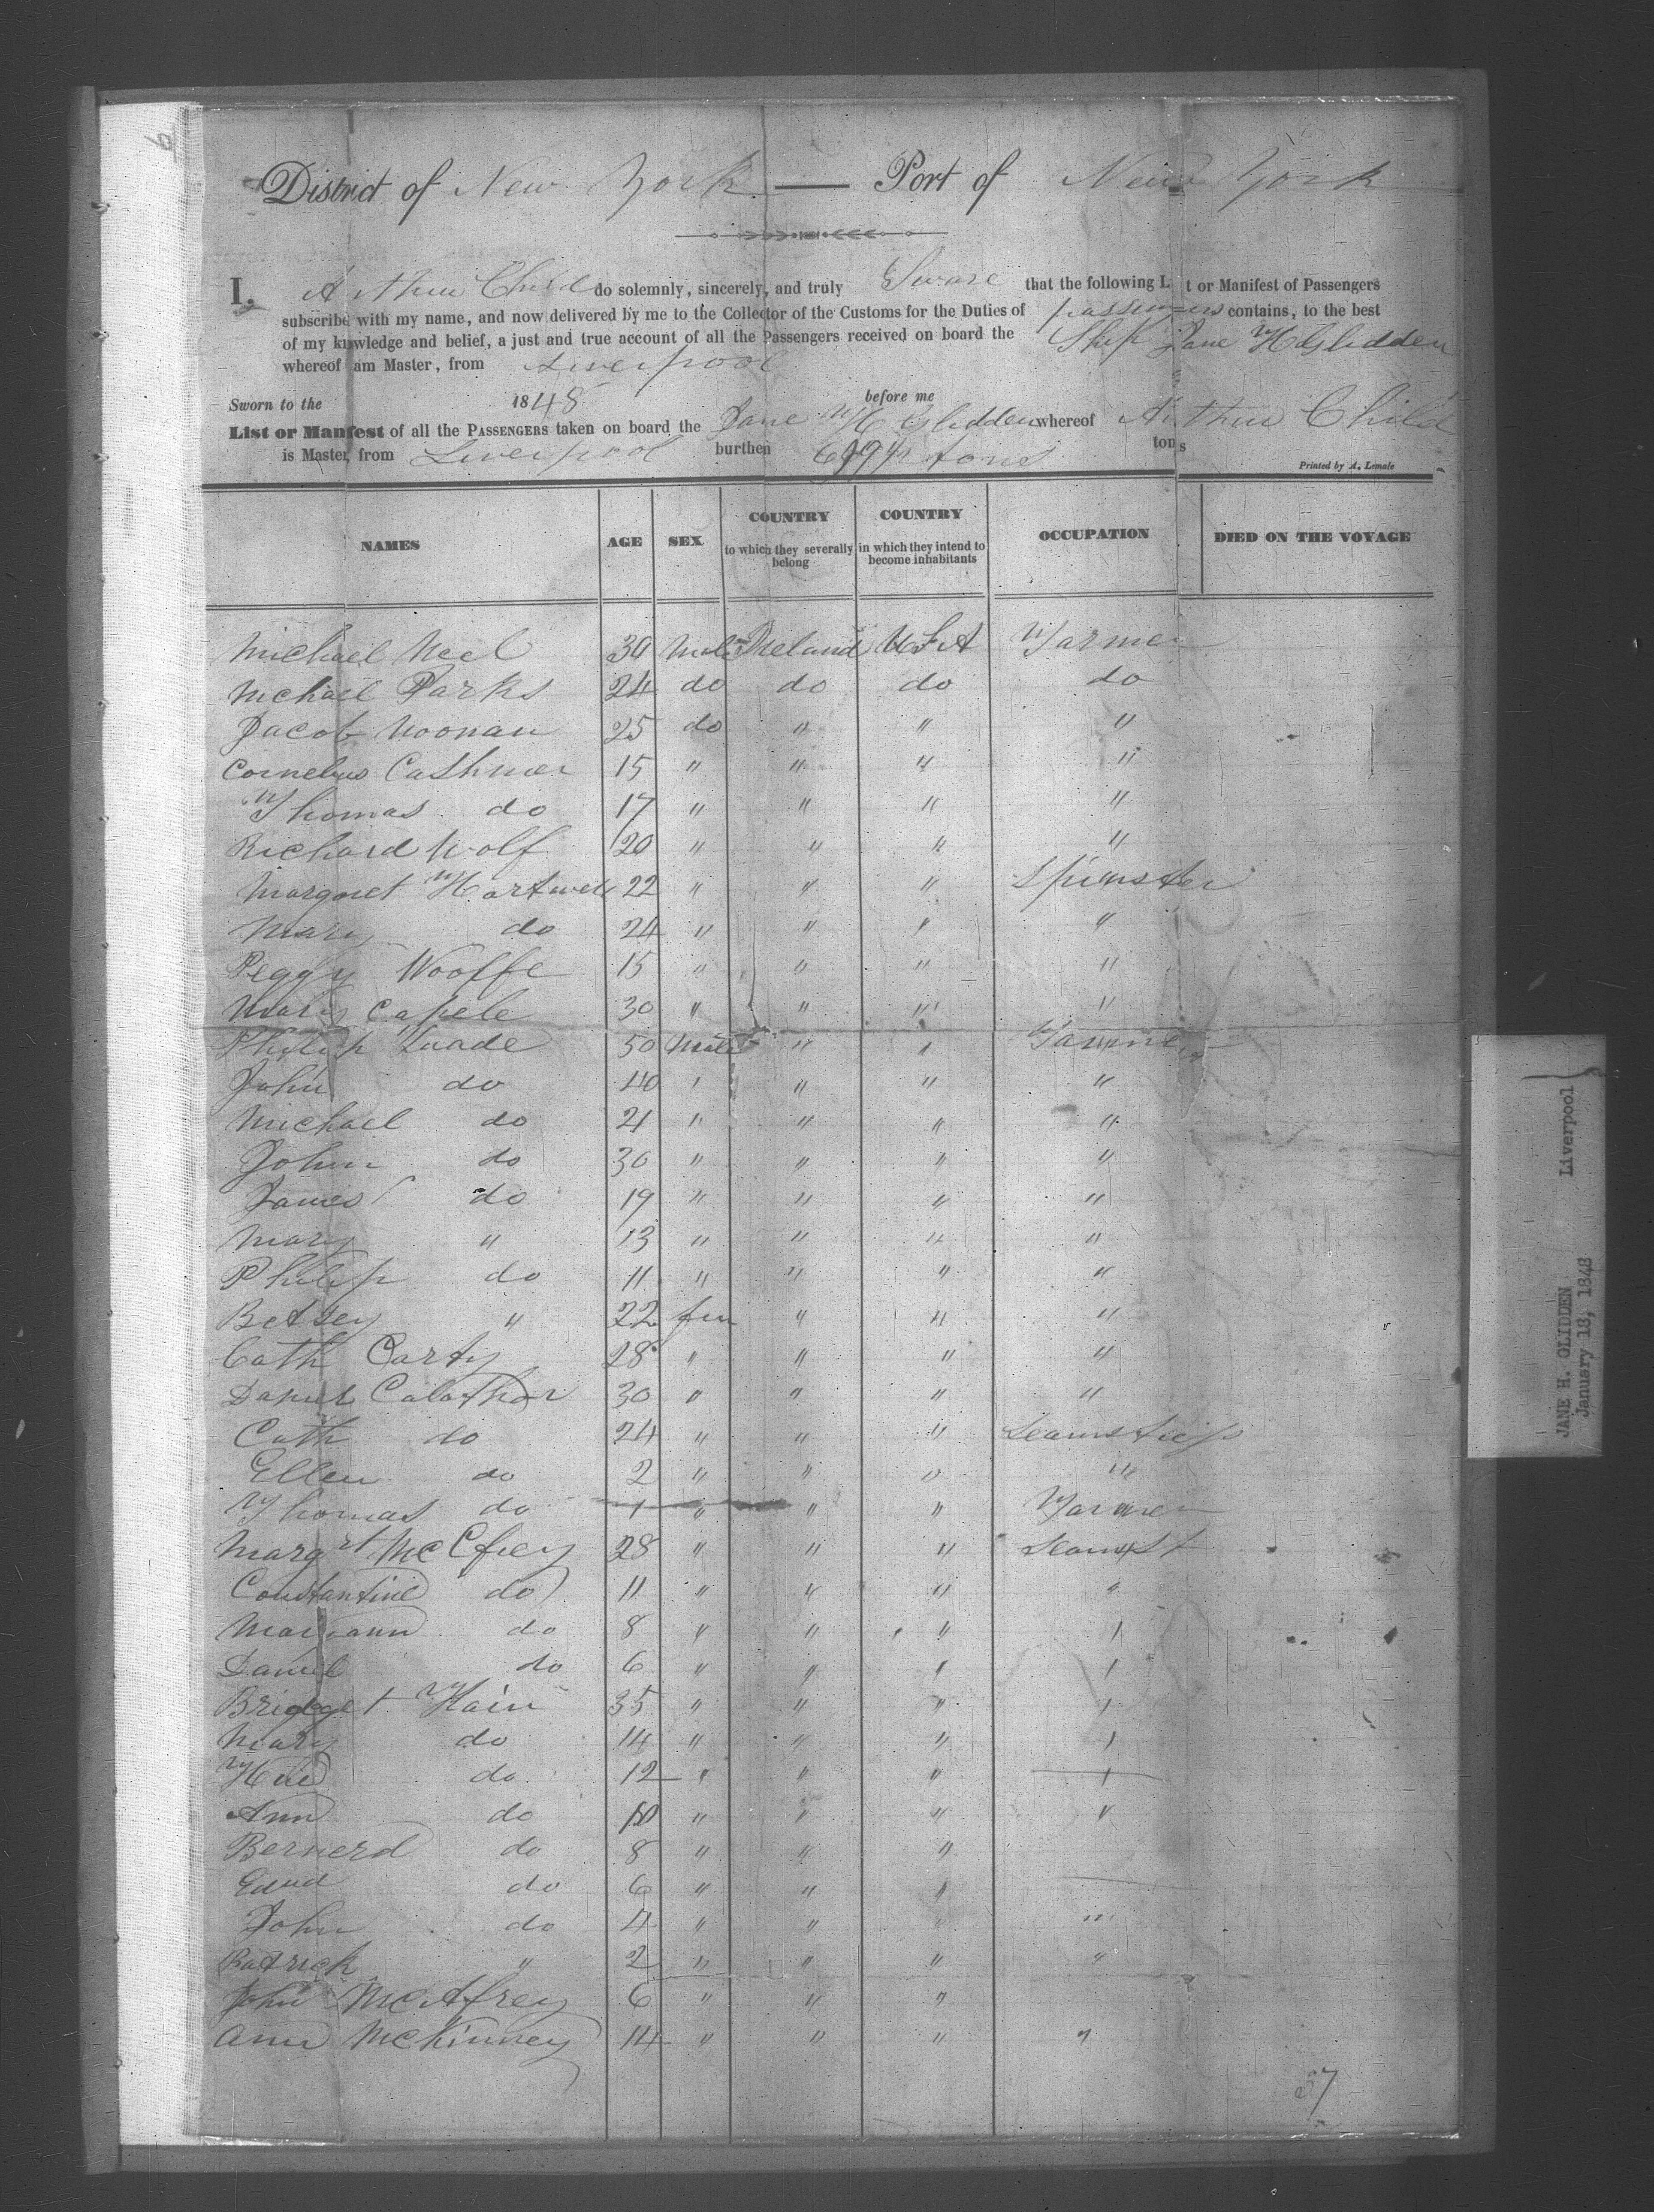 District of New York — Port of New York
I, Arthur Child do solemnly, sincerely, and truly Sware that the following L t or Manifest of Passengers
subscribe with my name, and now delivered by me to the Collector of the Customs for the Duties of passengers contains, to the best
of my knowledge and belief, a just and true account of all the Passengers received on board the Ship Jane H Glidden
whereof am Master, from Liverpool
Sworn to the 1848 before me
List or Manfest of all the PASSENGERS taken on board the Jane H Glidden whereof Arthur Child
is Master, from Liverpool burthen tons tons
Printed by A. Lemale
NAMES AGE SEX COUNTRY to which they severally belong COUNTRY in which they intend to become inhabitants OCCUPATION DIED ON THE VOYAGE
Michael Neel 30 Male Ireland U S A Farmer
Michael Parks 24 do do do do
Jacob Noonan 25 do " " "
Cornelius Cashmer 15 " " " "
Thomas do 17 " " " "
Richard Wolf 20 " " " "
Margaret Hartwell 22 " " " Spinster
Mary do 24 " " " "
Peggy Woolfe 15 " " " "
Mary Capele 30 " " " "
Philip Quade 50 Male " " Farmer
John do 40 " " " "
Michael do 21 " " " "
John do 30 " " " "
James do 19 " " " "
Mary " 13 " " " "
Philip do 11 " " " "
Betsey " 22 fem " " "
Cath Carty 28 " " " "
Daniel Calathar 30 " " " "
Cath do 24 " " " Seamstress
Ellen do 2 " " " "
Thomas do 1 " " " Farmer
Margrt McCfrey 28 " " " Seamst
Constantine do 11 " " " "
Maryann do 8 " " " "
Daniel do 6 " " " "
Bridget Hain 35 " " " "
Mary do 14 " " " "
do 12 " " " "
Ann do 10 " " " "
Bernerd do 8 " " "
Edwd do 6 " " "
John do 4 " " " "
Patrick " 2 " " " "
John McAfrey 6 " " "
Ann McKinney 14 " " " "
37
JANE H. GLIDDEN Liverpool
January 18, 1848